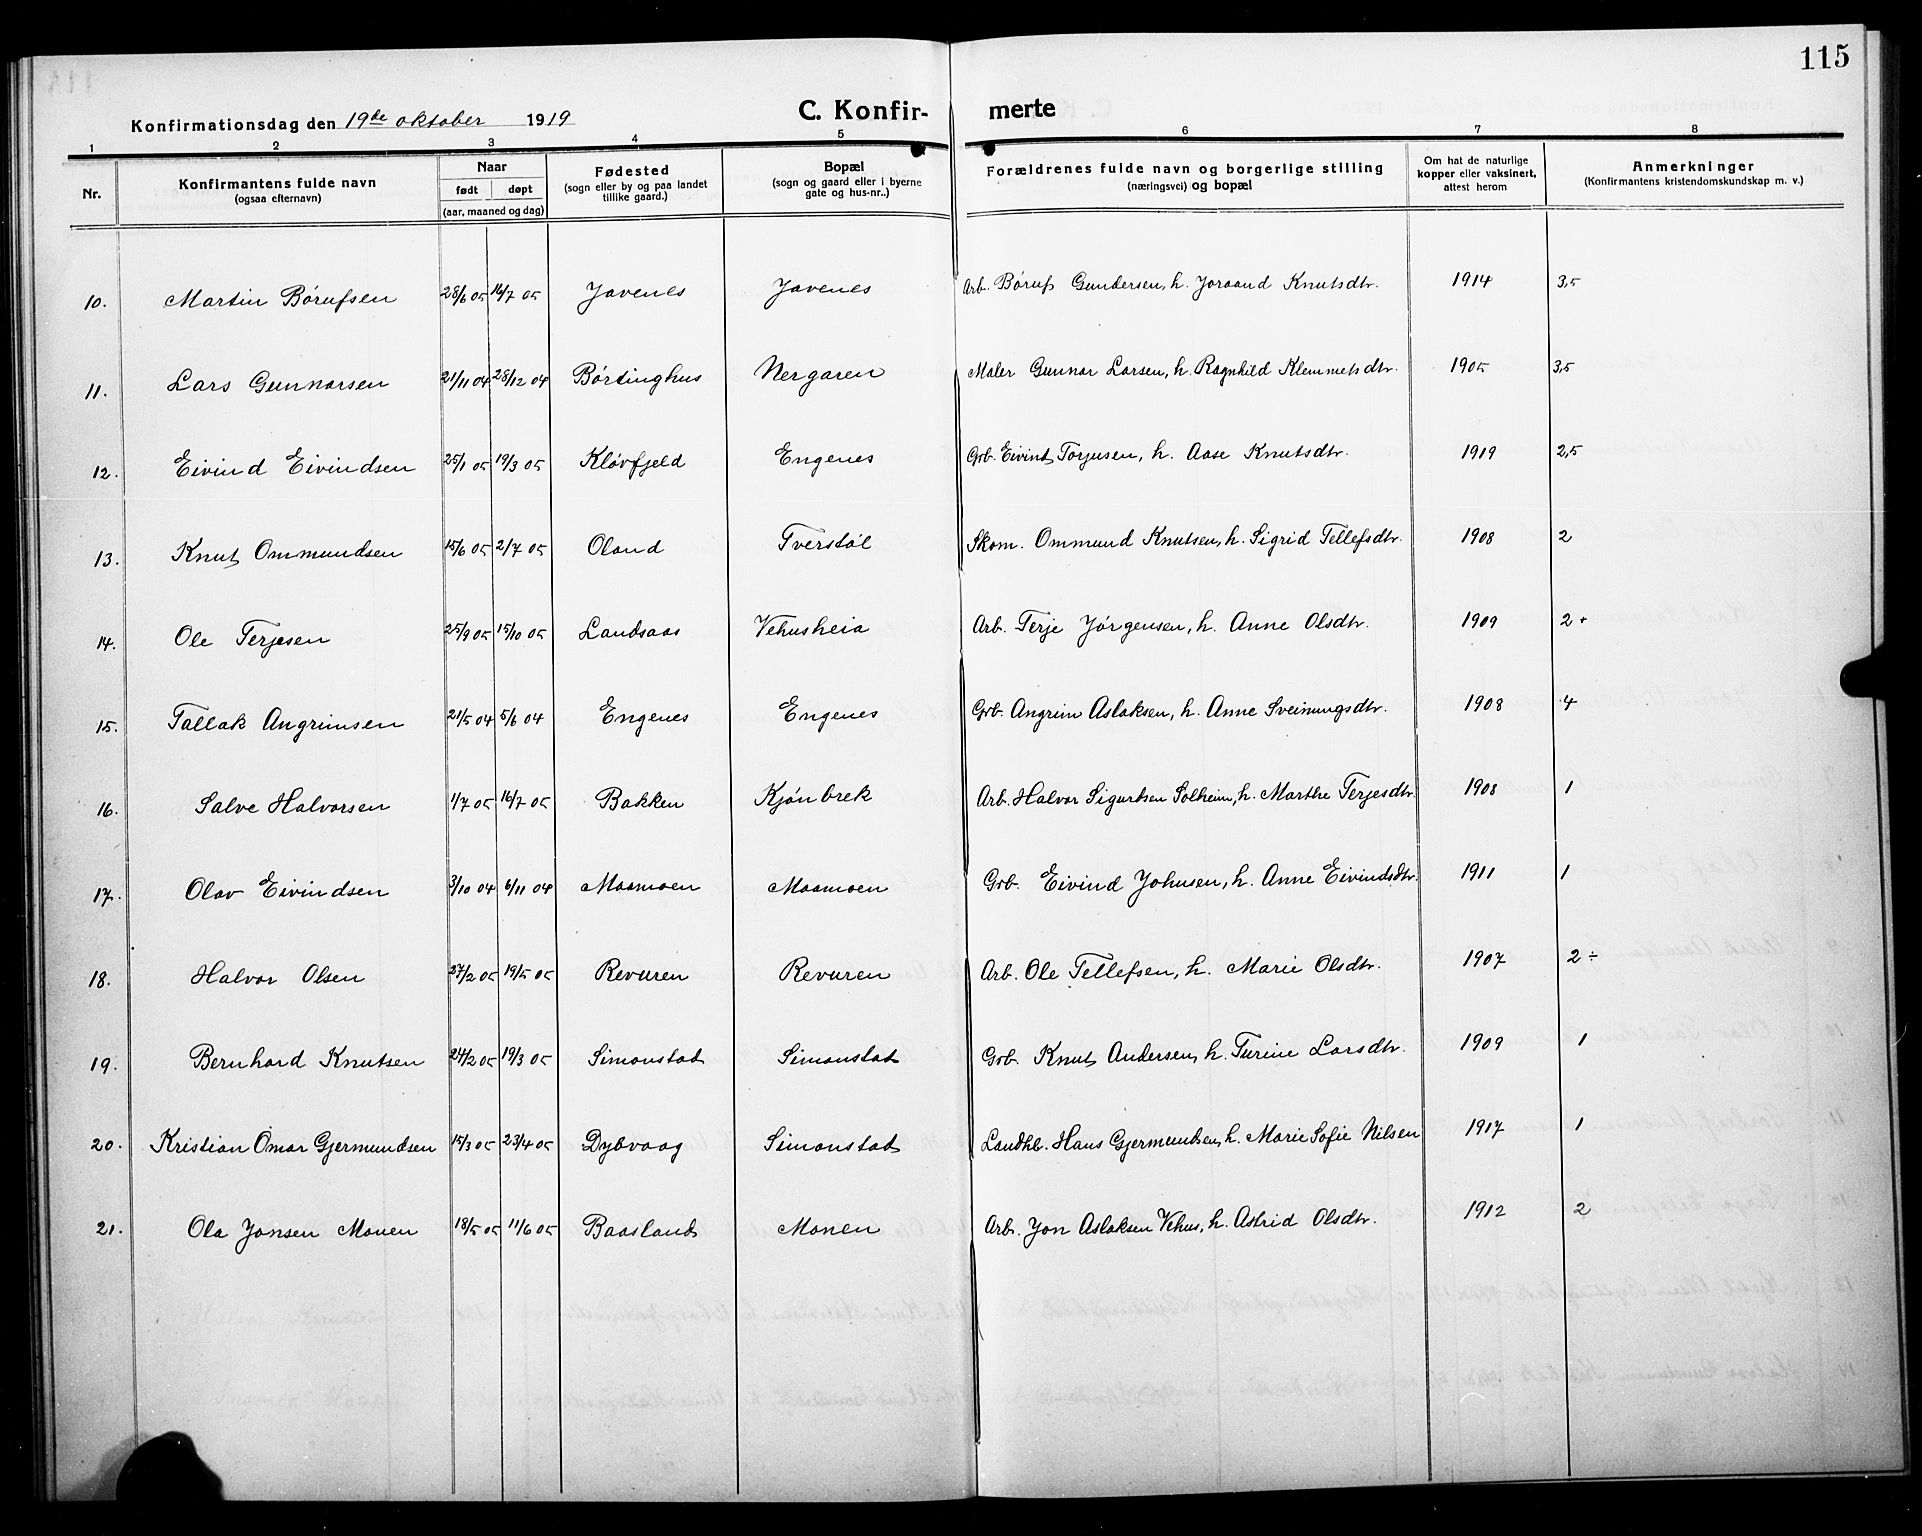 115
Konfirmationsdag den 19de oktober 1919 C. Konfir- merte
1 2 3 4 5 6 7 8
Nr. Konfirmantens fulde navn (ogsaa efternavn) Naar født døpt (aar, maaned og dag) Fødested (sogn eller by og paa landet tillike gaard.) Bopæl (sogn og gaard eller i byerne gate og hus-nr.) Forældrenes fulde navn og borgerlige stilling (næringsvei) og bopæl Om hat de naturlige kopper eller vaksinert, attest herom Anmerkninger (Konfirmantens kristendomskundskap m. v.)
10. Martin Børufsen 28/6 05 16/7 05 Jovenes Jovenes Arb. Børuf Gundersen, h. Joraand Knutsdtr. 1914 3,5
11. Lars Gunnarsen 21/11 04 28/12 04 Børtinghus Nergaren Maler Gunnar Larsen, h. Ragnhild Klemmetsdtr. 1905 3,5
12. Eivind Eivindsen 25/1 05 19/3 05 Kløvfjeld Engenes Grb. Eivind Torjusen, h. Aase Knutsdtr. 1919 2,5
13. Knut Ommundsen 15/6 05 2/7 05 Oland Tverstøl Skom. Ommund Knutsen, h. Sigrid Tellefsdtr. 1908 2
14. Ole Terjesen 25/9 05 15/10 05 Landsaas Vehusheia Arb. Terje Jørgensen, h. Anne Olsdtr. 1909 2 +
15. Tallak Angrimsen 21/5 04 5/6 04 Engenes Engenes Grb. Angrim Aslaksen, h. Anne Sveinungsdtr. 1908 4
16. Salve Halvorsen 1/7 05 16/7 05 Bakken Kjønbrek Arb. Halvor Sigurdsen Solheim, h. Marthe Terjesdtr. 1908 1
17. Olav Eivindsen 3/10 04 6/11 04 Moamoen Moamoen Grb. Eivind Johnsen, h. Anne Eivindsdtr. 1911 1
18. Halvor Olsen 27/2 05 19/5 05 Revuren Revuren Arb. Ole Tellefsen, h. Marie Olsdtr. 1907 2 ÷
19. Bernhard Knutsen 24/2 05 19/3 05 Simonstad Simonstad Grb. Knut Andersen, h. Turine Larsdtr. 1909 1
20. Kristian Omar Gjermundsen 15/3 05 23/4 05 Dybvaag Simonstad Landhb. Hans Gjermundsen, h. Marie Sofie Nilsen 1917 1
21. Ola Jonsen Monen 18/5 05 11/6 05 Baasland Monen Arb. Jon Aslaksen Vehus, h. Astrid Olsdtr. 1912 2